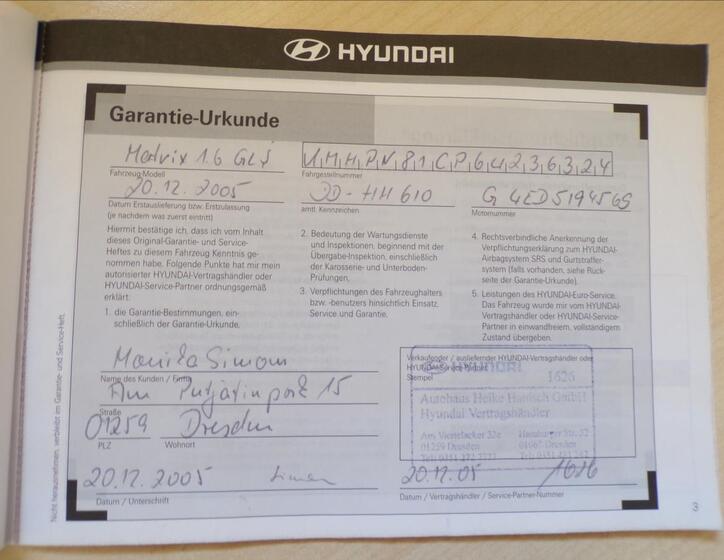 HYUNDAI
Garantie-Urkunde
Matrix 1.6 GLS
Fahrzeug-Modell
20.12.2005
Datum Erstauslieferung bzw. Erstzulassung
(je nachdem was zuerst eintritt)
Hiermit bestätige ich, dass ich vom Inhalt
dieses Original-Garantie- und Service-
Heftes zu diesem Fahrzeug Kenntnis ge-
nommen habe. Folgende Punkte hat mir mein
autorisierter HYUNDAI-Vertragshändler oder
HYUNDAI-Service-Partner ordnungsgemäß
erklärt:
1. die Garantie-Bestimmungen, ein-
schließlich der Garantie-Urkunde.
Fahrgestellnummer
DD-HH 610
amtl. Kennzeichen
2. Bedeutung der Wartungsdienste
und Inspektionen, beginnend mit der
Übergabe-Inspektion, einschließlich
der Karosserie- und Unterboden-
Prüfungen.
3. Verpflichtungen des Fahrzeughalters
bzw. -benutzers hinsichtlich Einsatz,
Service und Garantie.
G4ED5194569
Motornummer
4. Rechtsverbindliche Anerkennung der
Verpflichtungserklärung zum HYUNDAI-
Airbagsystem SRS und Gurtstraffer-
system (falls vorhanden, siehe Rück-
seite der Garantie-Urkunde).
5. Leistungen des HYUNDAI-Euro-Service.
Das Fahrzeug wurde mir vom HYUNDAI-
Vertragshändler oder HYUNDAI-Service-
Partner in einwandfreiem, vollständigem
Zustand übergeben.
Monika Simon
Name des Kunden / Firma
Am Putjatinpark 15
Straße
01259 Dresden
PLZ Wohnort
20.12.2005 Simon
Datum / Unterschrift
Verkaufender / ausliefernder HYUNDAI-Vertragshändler oder
HYUNDAI-Service-Partner
Stempel
HYUNDAI
1626
Autohaus Heike Hanisch GmbH
Hyundai Vertragshändler
01259 Dresden
Dresden
20.12.05 1626
Datum / Vertragshändler / Service-Partner-Nummer
Nicht herausnehmen, verbleibt im Garantie- und Service-Heft.
3